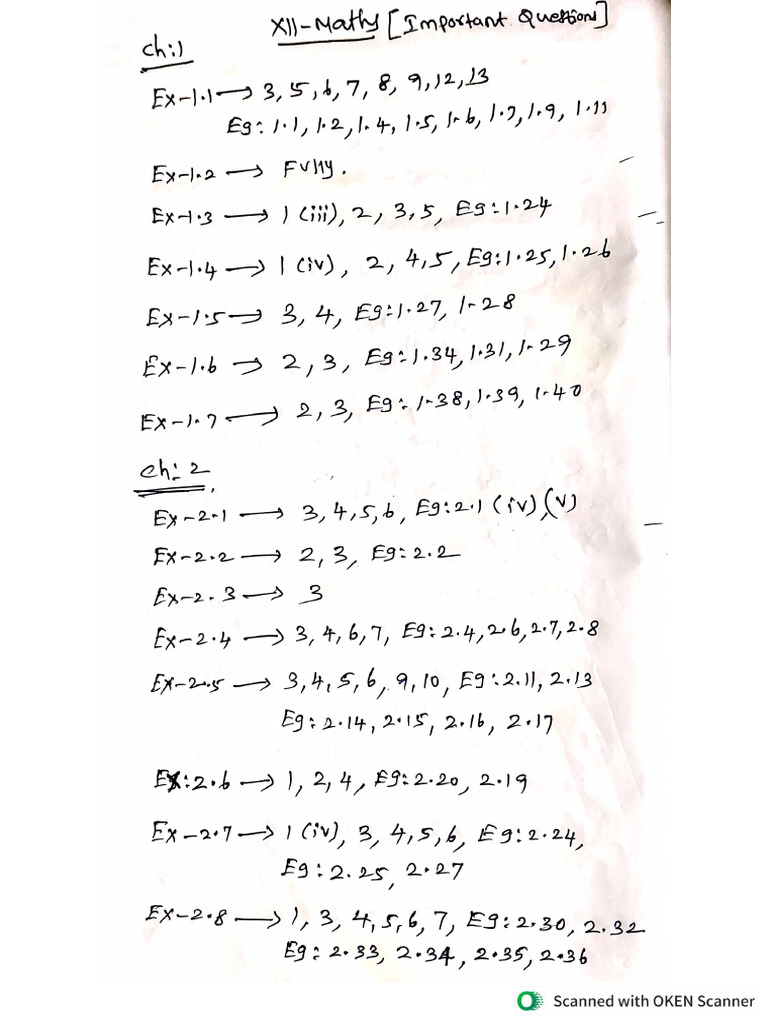 XII-Maths [Important Questions]
Ch:1
Ex-1.1 → 3, 5, 6, 7, 8, 9, 12, 13
Eg: 1.1, 1.2, 1.4, 1.5, 1.6, 1.7, 1.9, 1.11
Ex-1.2 → Fully.
Ex-1.3 → 1 (iii), 2, 3, 5, Eg: 1.24
Ex-1.4 → 1 (iv), 2, 4, 5, Eg: 1.25, 1.26
Ex-1.5 → 3, 4, Eg: 1.27, 1.28
Ex-1.6 → 2, 3, Eg: 1.34, 1.31, 1.29
Ex-1.7 → 2, 3, Eg: 1.38, 1.39, 1.40
Ch: 2
Ex-2.1 → 3, 4, 5, 6, Eg: 2.1 (iv), (v)
Ex-2.2 → 2, 3, Eg: 2.2
Ex-2.3 → 3
Ex-2.4 → 3, 4, 6, 7, Eg: 2.4, 2.6, 2.7, 2.8
Ex-2.5 → 3, 4, 5, 6, 9, 10, Eg: 2.11, 2.13
Eg: 2.14, 2.15, 2.16, 2.17
Ex: 2.6 → 1, 2, 4, Eg: 2.20, 2.19
Ex-2.7 → 1 (iv), 3, 4, 5, 6, Eg: 2.24,
Eg: 2.25, 2.27
Ex-2.8 → 1, 3, 4, 5, 6, 7, Eg: 2.30, 2.32
Eg: 2.33, 2.34, 2.35, 2.36
Scanned with OKEN Scanner